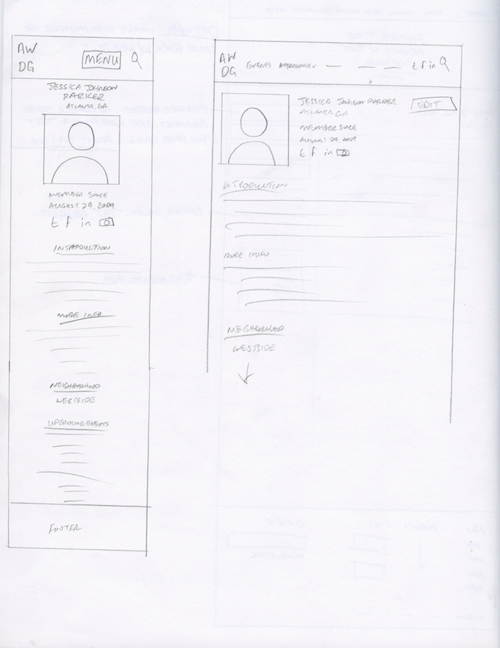 AW
DG
MENU
JESSICA JOHNSON
PARKER
ATLANTA, GA
MEMBER SINCE
AUGUST 29, 2009
t f in
INTRODUCTION
MORE INFO
NEIGHBORHOOD
WESTSIDE
UPCOMING EVENTS
FOOTER
AW
DG
EVENTS
t f in
JESSICA JOHNSON PARKER
ATLANTA, GA
EDIT
MEMBER SINCE
AUGUST 29, 2009
t f in
INTRODUCTION
MORE INFO
NEIGHBORHOOD
WESTSIDE